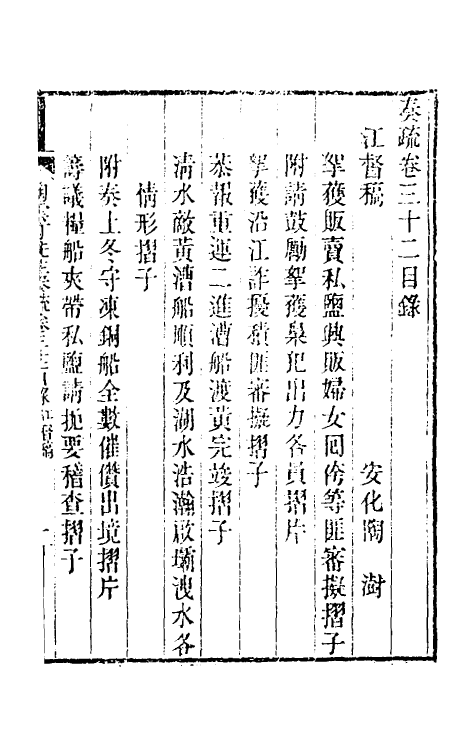 奏疏卷三十二目錄
江督稿　安化陶澍
拏獲販賣私鹽興販婦女囘侉等匪審擬摺子
附請鼓勵拏獲梟犯出力各員摺片
拏獲沿江詐擾積匪審擬摺子
恭報重運二進漕船渡黃完竣摺子
淸水敵黃漕船順利及湖水浩瀚啟壩洩水各
情形摺子
附奏上冬守凍銅船全數催儹出境摺片
籌議糧船夾帶私鹽請扼要稽查摺子
奏疏卷三十二目錄　江督稿　一